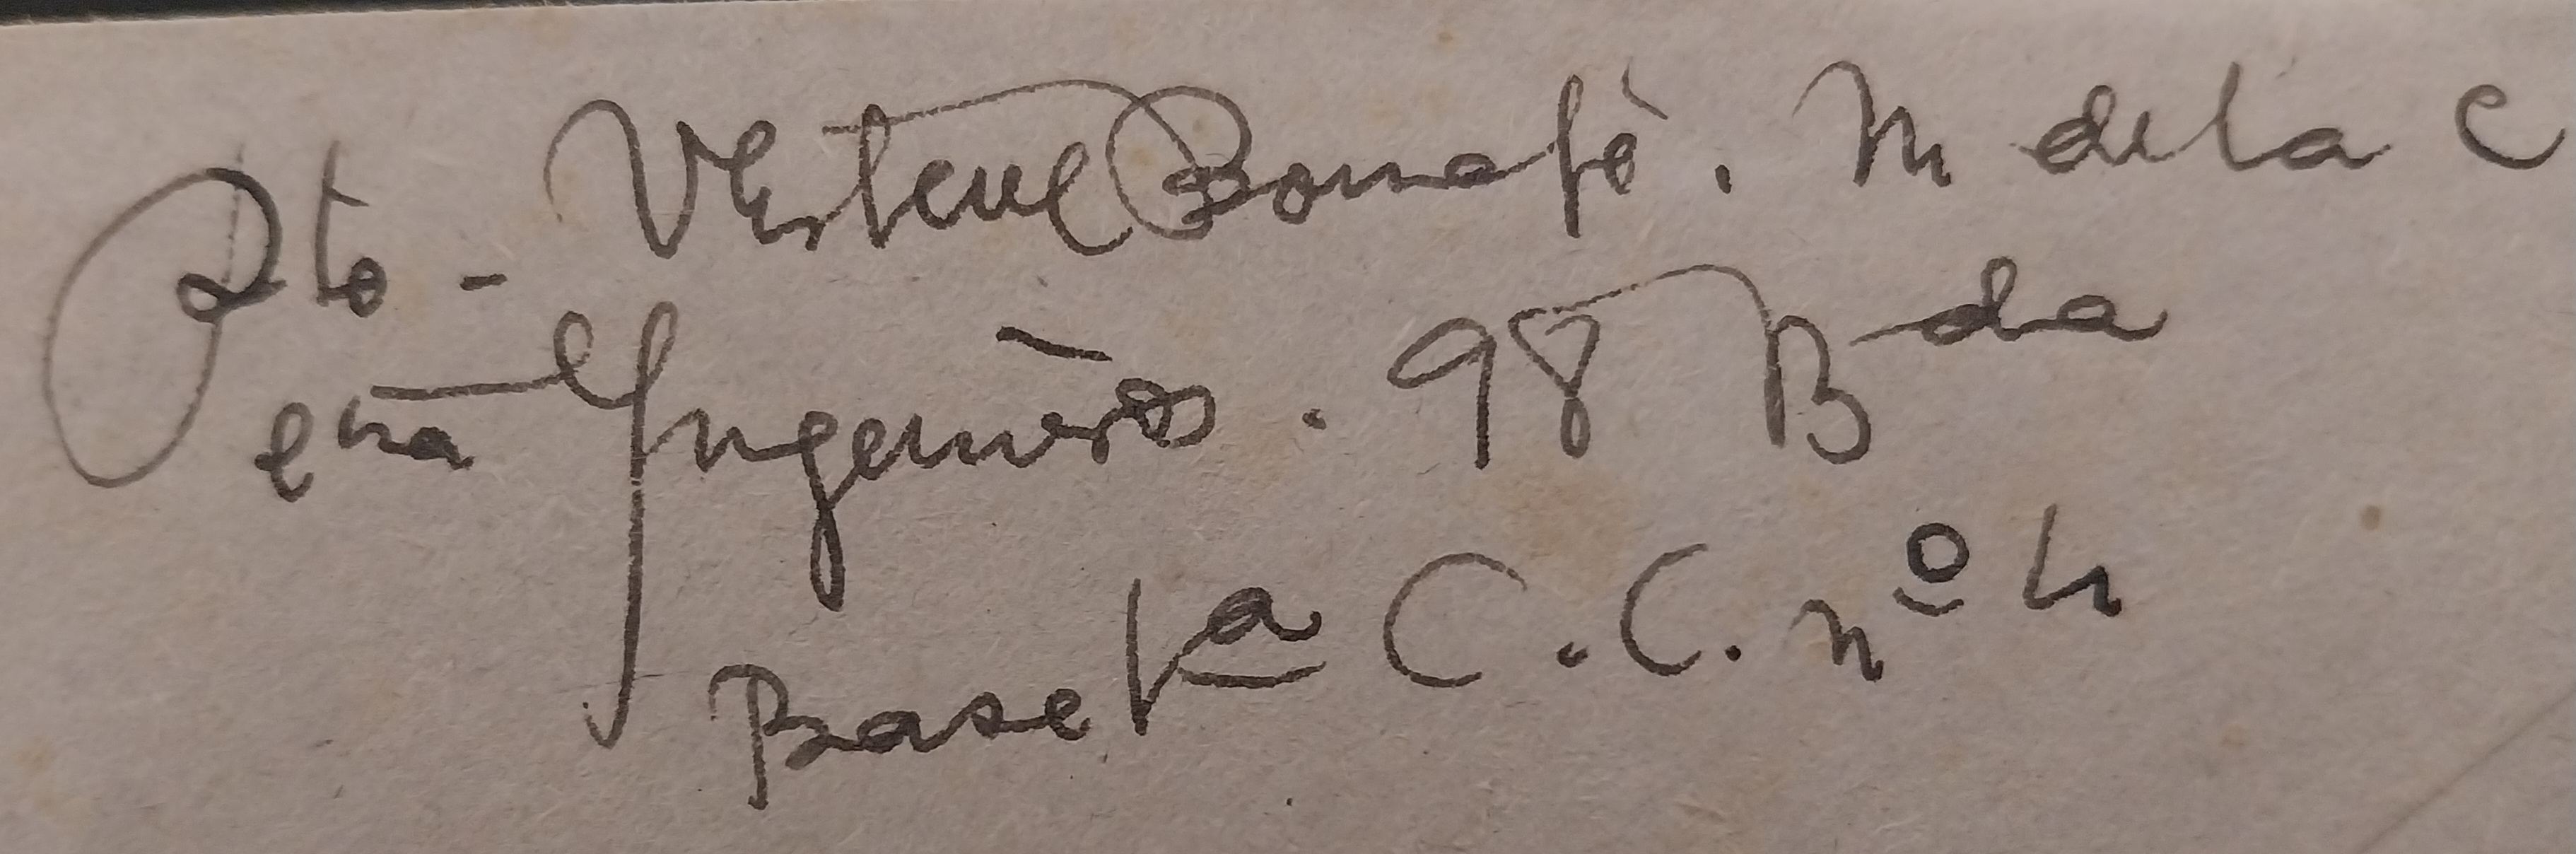 Rto - Vesteve Bonafè. M de la C
Cña Ingenieros. 98 Bda
Base 1ª C.C. nº 4